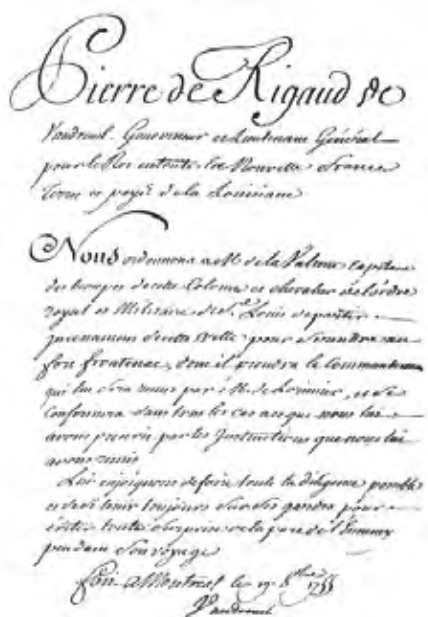 Pierre de Rigaud de
Vaudreuil Gouverneur et Lieutenant Général
pour le Roi en toute la Nouvelle France
Terres et payis de la Louisiane
Nous ordonnons a M. de la Valtrie Capitaine
des troupes de cette Colonie et chevalier de l'ordre
royal et Militaire de St. Louis de partir
incessamment de cette ville pour se rendre au
fort frontenac, dont il prendra le Commandement
qui lui sera remis par M. de et se
Conformera dans tous les cas a ce que nous lui
avons prescrit par les Instructions que nous lui
avons remis
Lui enjoignons de faire toute la diligence possible
et de se tenir toujours sur ses gardes pour
éviter toute surprise de la part de l'Ennemy
pendant son voyage
fait a Montreal le 19 8bre 1755
Vaudreuil